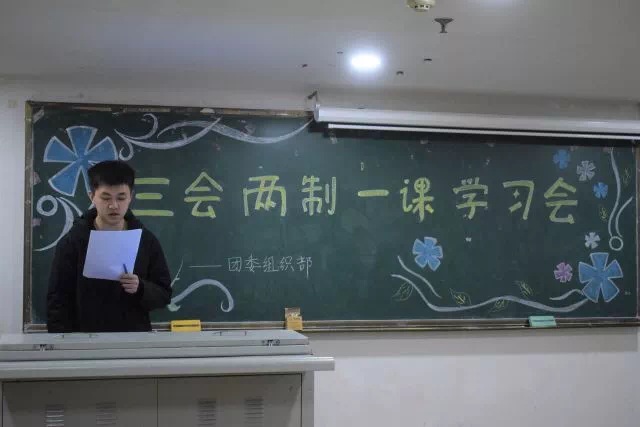 三会两制一课学习会
——团委组织部